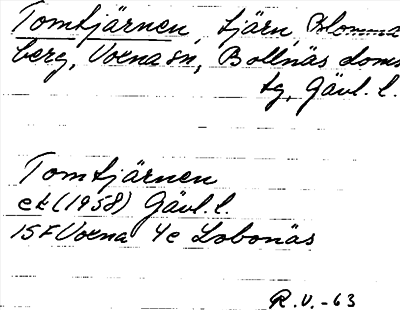 Tomtjärnen, tjärn, Blomma
berg, Voxna sn, Bollnäs doms
tg, Gävl. l.
Tomtjärnen
ek (1958) Gävl. l.
15F Voxna 4e Lobonäs
R.V.-63